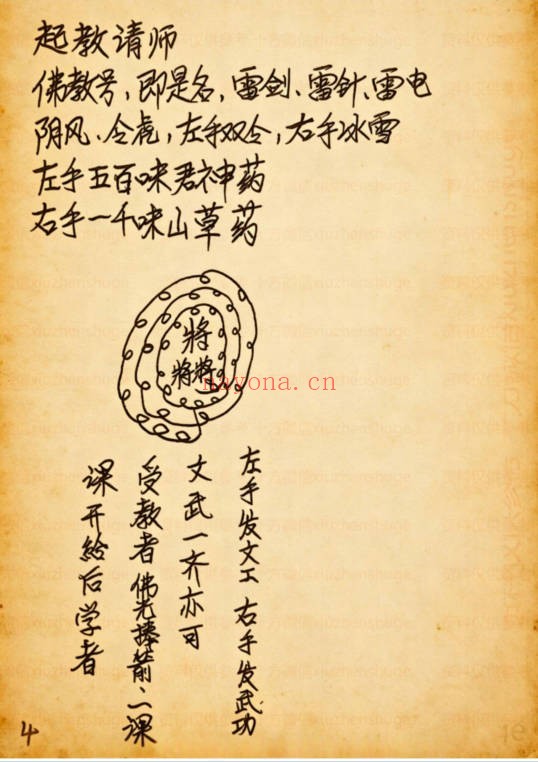 起教请师
佛教号,即是名,雷剑、雷针、雷电
阴风、令虎,左手双令,右手冰雪
左手五百味君神药
右手一千味山草药
將
將將
nayona.cn
左手发文工 右手发武功
文武一齐亦可
受教者佛光捧箭、二课
课开给后学者
4